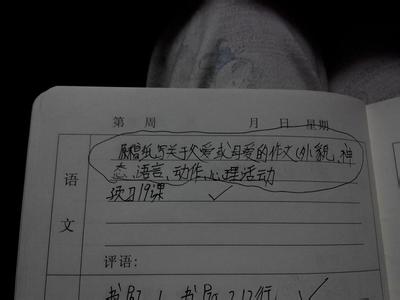 第 周 月 日 星期
语文
原稿纸写关于父爱或母爱的作文(外貌、神
态、语言、动作、心理活动
预习19课
评语: